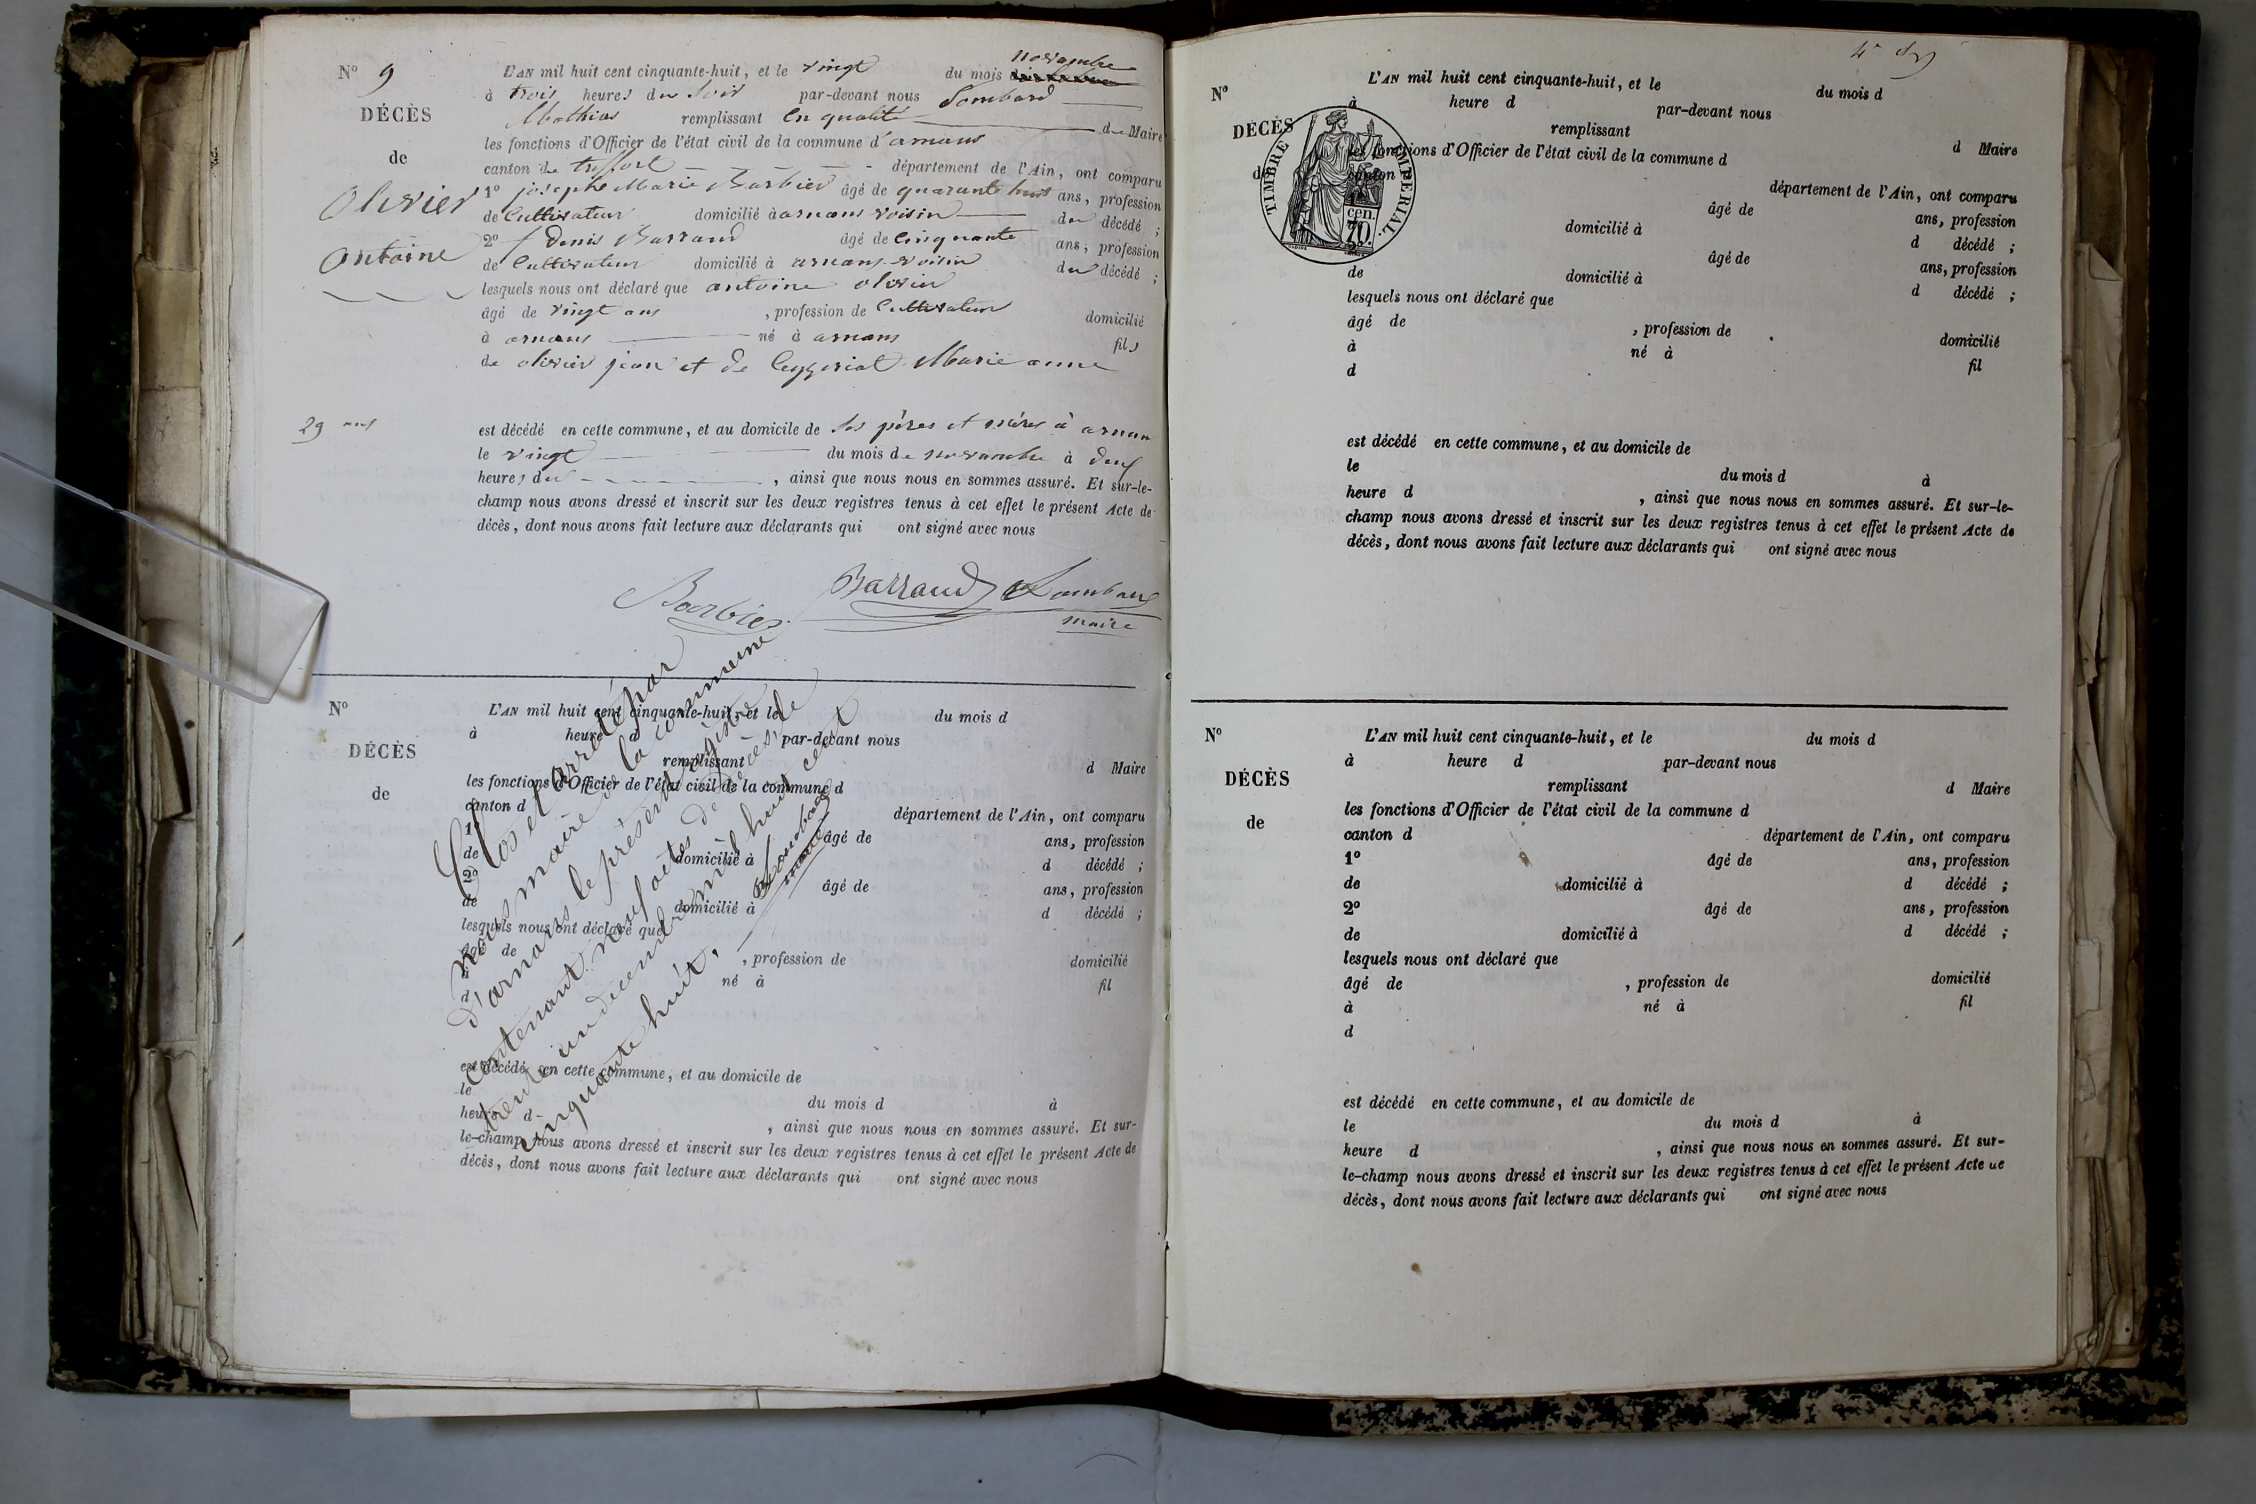 N° 9
DÉCÈS
de
Olivier
Antoine
29 ans
L'AN mil huit cent cinquante-huit, et le vingt du mois de novembre
à trois heures du soir par-devant nous Lombard
Mathias remplissant en qualité de Maire
les fonctions d'Officier de l'état civil de la commune d'arnans
canton de treffort département de l'Ain, ont comparu
1° josephe Marie Barbier âgé de quarante huit ans, profession
de Cultivateur domicilié à arnans voisin du décédé ;
2° denis Barraud âgé de Cinquante ans, profession
de Cultivateur domicilié à arnans voisin du décédé ;
lesquels nous ont déclaré que antoine olivier
âgé de vingt ans , profession de Cultivateur domicilié
à arnans né à arnans fils
de olivier jean et de Marie anne
est décédé en cette commune, et au domicile de ses pères et mères à arnans
le vingt du mois de novembre à deux
heures du , ainsi que nous nous en sommes assuré. Et sur-le-
champ nous avons dressé et inscrit sur les deux registres tenus à cet effet le présent Acte de
décès, dont nous avons fait lecture aux déclarants qui ont signé avec nous
Barbier Barraud Lombard
maire
N°
DÉCÈS
de
L'AN mil huit cent cinquante-huit, et le du mois d
à heure d par-devant nous
remplissant d Maire
les fonctions d'Officier de l'état civil de la commune d
canton d département de l'Ain, ont comparu
1° âgé de ans, profession
de domicilié à d décédé ;
2° âgé de ans, profession
de domicilié à d décédé ;
lesquels nous ont déclaré que
âgé de , profession de domicilié
à né à fil
d
est décédé en cette commune, et au domicile de
le du mois d à
heure d , ainsi que nous nous en sommes assuré. Et sur-
le-champ nous avons dressé et inscrit sur les deux registres tenus à cet effet le présent Acte de
décès, dont nous avons fait lecture aux déclarants qui ont signé avec nous
Clos et arrêté par
nous maire de la commune
d'arnans le présent registre
contenant neuf actes de décès, le
trente un decembre mil huit cent
cinquante huit,
Lombard
maire
4e
N°
DÉCÈS
de
TIMBRE IMPÉRIAL
70 cen.
L'AN mil huit cent cinquante-huit, et le du mois d
à heure d par-devant nous
remplissant d Maire
les fonctions d'Officier de l'état civil de la commune d
canton département de l'Ain, ont comparu
âgé de ans, profession
domicilié à d décédé ;
âgé de ans, profession
de domicilié à d décédé ;
lesquels nous ont déclaré que
âgé de , profession de domicilié
à né à fil
d
est décédé en cette commune, et au domicile de
le du mois d à
heure d , ainsi que nous nous en sommes assuré. Et sur-le-
champ nous avons dressé et inscrit sur les deux registres tenus à cet effet le présent Acte de
décès, dont nous avons fait lecture aux déclarants qui ont signé avec nous
N°
DÉCÈS
de
L'AN mil huit cent cinquante-huit, et le du mois d
à heure d par-devant nous
remplissant d Maire
les fonctions d'Officier de l'état civil de la commune d
canton d département de l'Ain, ont comparu
1° âgé de ans, profession
de domicilié à d décédé ;
2° âgé de ans, profession
de domicilié à d décédé ;
lesquels nous ont déclaré que
âgé de , profession de domicilié
à né à fil
d
est décédé en cette commune, et au domicile de
le du mois d à
heure d , ainsi que nous nous en sommes assuré. Et sur-
le-champ nous avons dressé et inscrit sur les deux registres tenus à cet effet le présent Acte de
décès, dont nous avons fait lecture aux déclarants qui ont signé avec nous